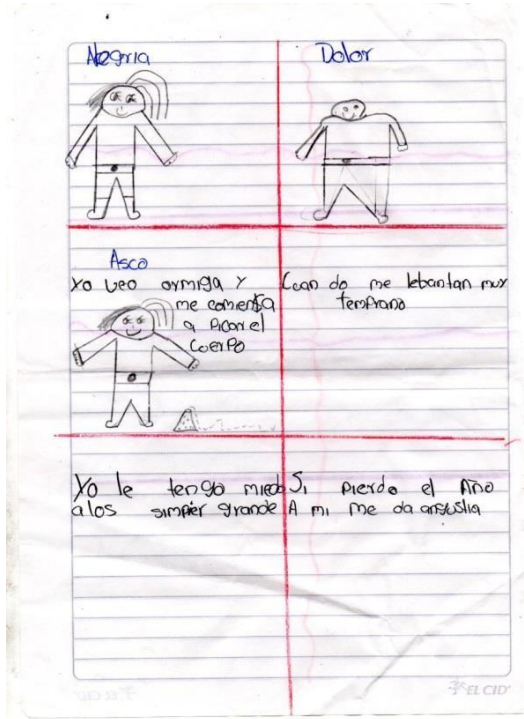 Alegria
Dolor
Asco
Yo veo ormiga y
me comensa
a Picar el
cuerpo
Cuan do me lebantan muy
temprano
Yo le tengo miedo
a los simpier grande
Si pierdo el Año
A mi me da angustia
EL CID